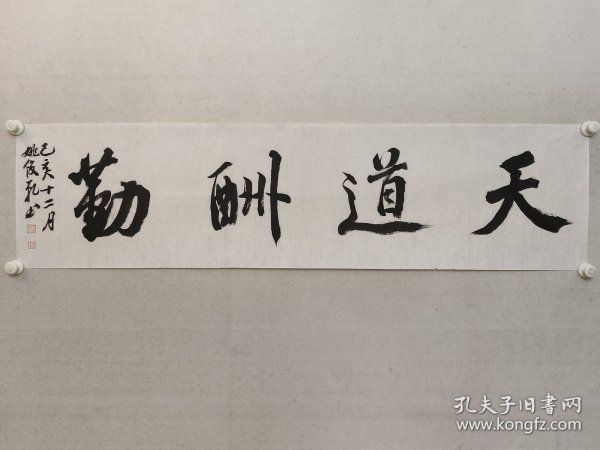 天道酬勤
己亥十二月
姚俊乾书
孔夫子旧書网
www.kongfz.com